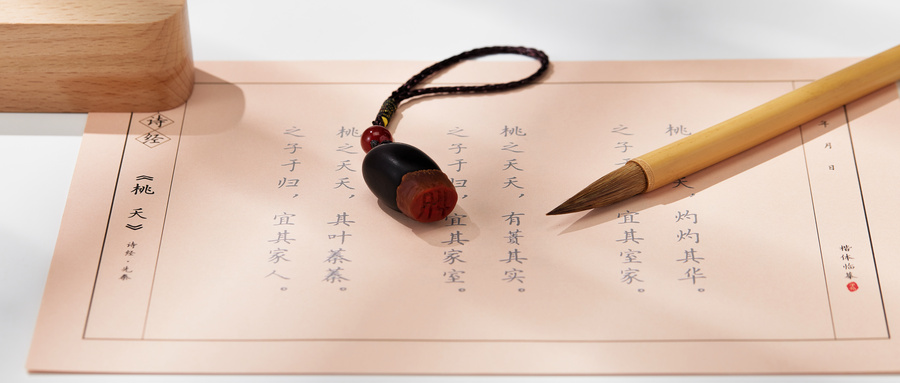 年 月 日
楷体临摹
桃夭,灼灼其华。
之子于宜其室家。
桃之夭夭,有蕡其实。
之子于归,宜其家室。
桃之夭夭,其叶蓁蓁。
之子于归,宜其家人。
诗经
《桃夭》
诗经·先秦